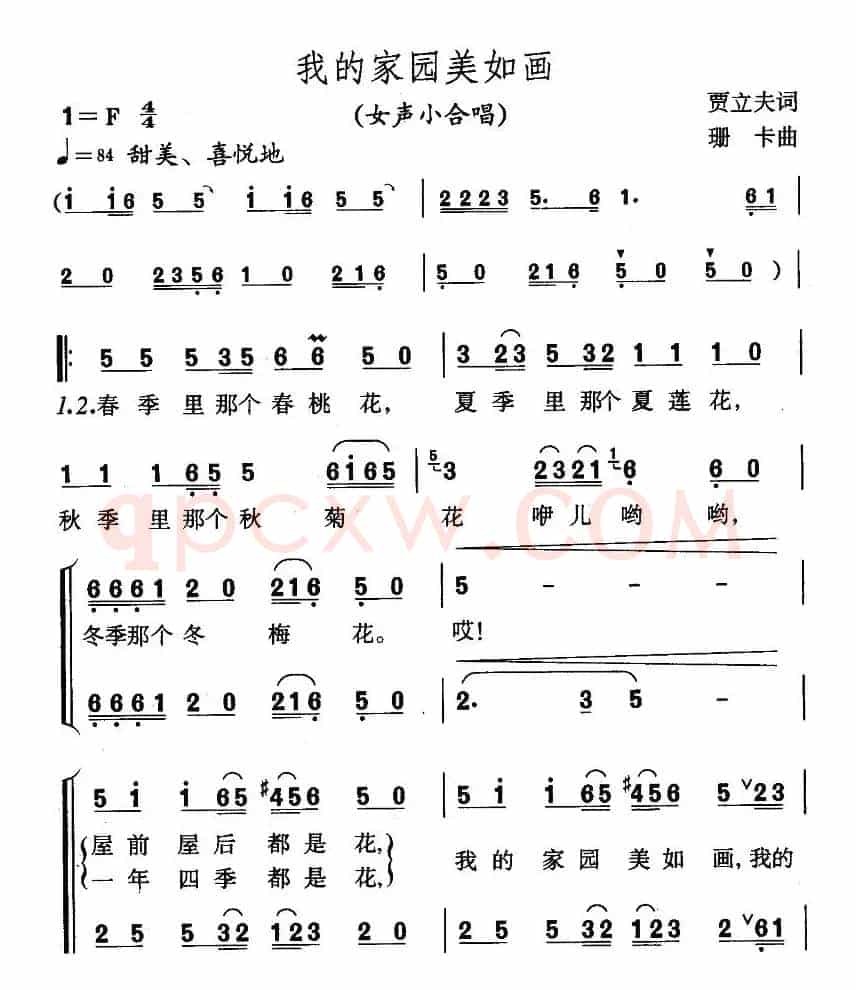 我的家园美如画
1=F 4/4
(女声小合唱)
贾立夫词
♩=84 甜美、喜悦地
珊 卡曲
(i i6 5 5 i i6 5 5 | 2223 5. 6 1. 61 |
2 0 2356 1 0 216 | 5 0 216 5 0 5 0 ) |
‖: 5 5 5 35 6 6 5 0 | 3 23 5 32 1 1 1 0 |
1.2.春 季 里 那 个 春 桃 花, 夏 季 里 那 个 夏 莲 花,
1 1 1 65 5 6i65 | 5 3 2321 1 6 6 0 |
秋 季 里 那 个 秋 菊 花 咿 儿 哟 哟,
qpcxw.COM
6661 2 0 216 5 0 | 5 - - - |
冬季那个 冬 梅 花。 哎!
6661 2 0 216 5 0 | 2. 3 5 - |
5 i i 65 #456 5 0 | 5 i i 65 #456 5 ∨23 |
屋 前 屋 后 都 是 花, 我 的 家 园 美 如 画, 我的
一 年 四 季 都 是 花,
2 5 5 32 123 2 0 | 2 5 5 32 123 2 ∨61 |